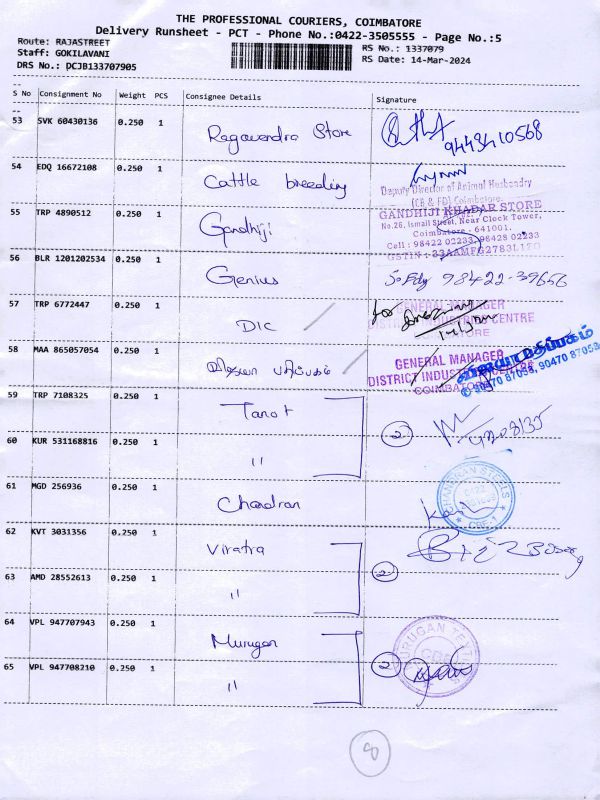 THE PROFESSIONAL COURIERS, COIMBATORE
Delivery Runsheet - PCT - Phone No.:0422-3505555 - Page No.:5
Route: RAJASTREET
Staff: GOKILAVANI
DRS No.: DCJB133707905
RS No.: 1337079
RS Date: 14-Mar-2024
S No Consignment No Weight PCS Consignee Details Signature
53 SVK 60430136 0.250 1 Ragavendra Store
9443410568
54 EDQ 16672108 0.250 1 Cattle breeding
Deputy Director of Animal Husbandry
(CB & FD) Coimbatore.
55 TRP 4890512 0.250 1 Gandhiji
GANDHIJI KHADAR STORE
No.26, Ismail Street, Near Clock Tower,
Coimbatore - 641001.
Cell : 98422 02233, 98428 02233
56 BLR 1201202534 0.250 1 Genius 98422-39656
57 TRP 6772447 0.250 1 DIC
for
GENERAL MANAGER
DISTRICT INDUSTRIES CENTRE
COIMBATORE
58 MAA 865057054 0.250 1 விஜயா பதிப்பகம்
GENERAL MANAGER
DISTRICT INDUSTRIES CENTRE
COIMBATORE
விஜயா பதிப்பகம்
90470 87058, 90470 87053
59 TRP 7108325 0.250 1 Tanot
2
60 KUR 531168816 0.250 1 "
61 MGD 256936 0.250 1 Chandran
CBE-1
62 KVT 3031356 0.250 1 Viratra
2
63 AMD 28552613 0.250 1 "
64 VPL 947707943 0.250 1 Murugan
MURUGAN
CBE
2
65 VPL 947708210 0.250 1 "
8